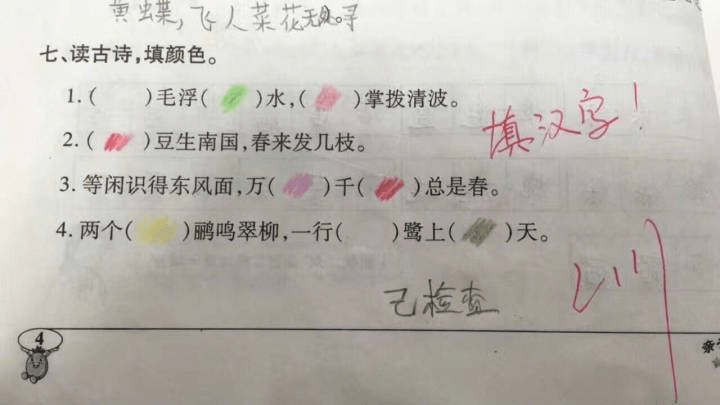 黄蝶,飞入菜花无处寻
七、读古诗,填颜色。
1.( )毛浮( )水,( )掌拨清波。
2.( )豆生南国,春来发几枝。
填汉字!
3.等闲识得东风面,万( )千( )总是春。
4.两个( )鹂鸣翠柳,一行( )鹭上( )天。
已检查
4